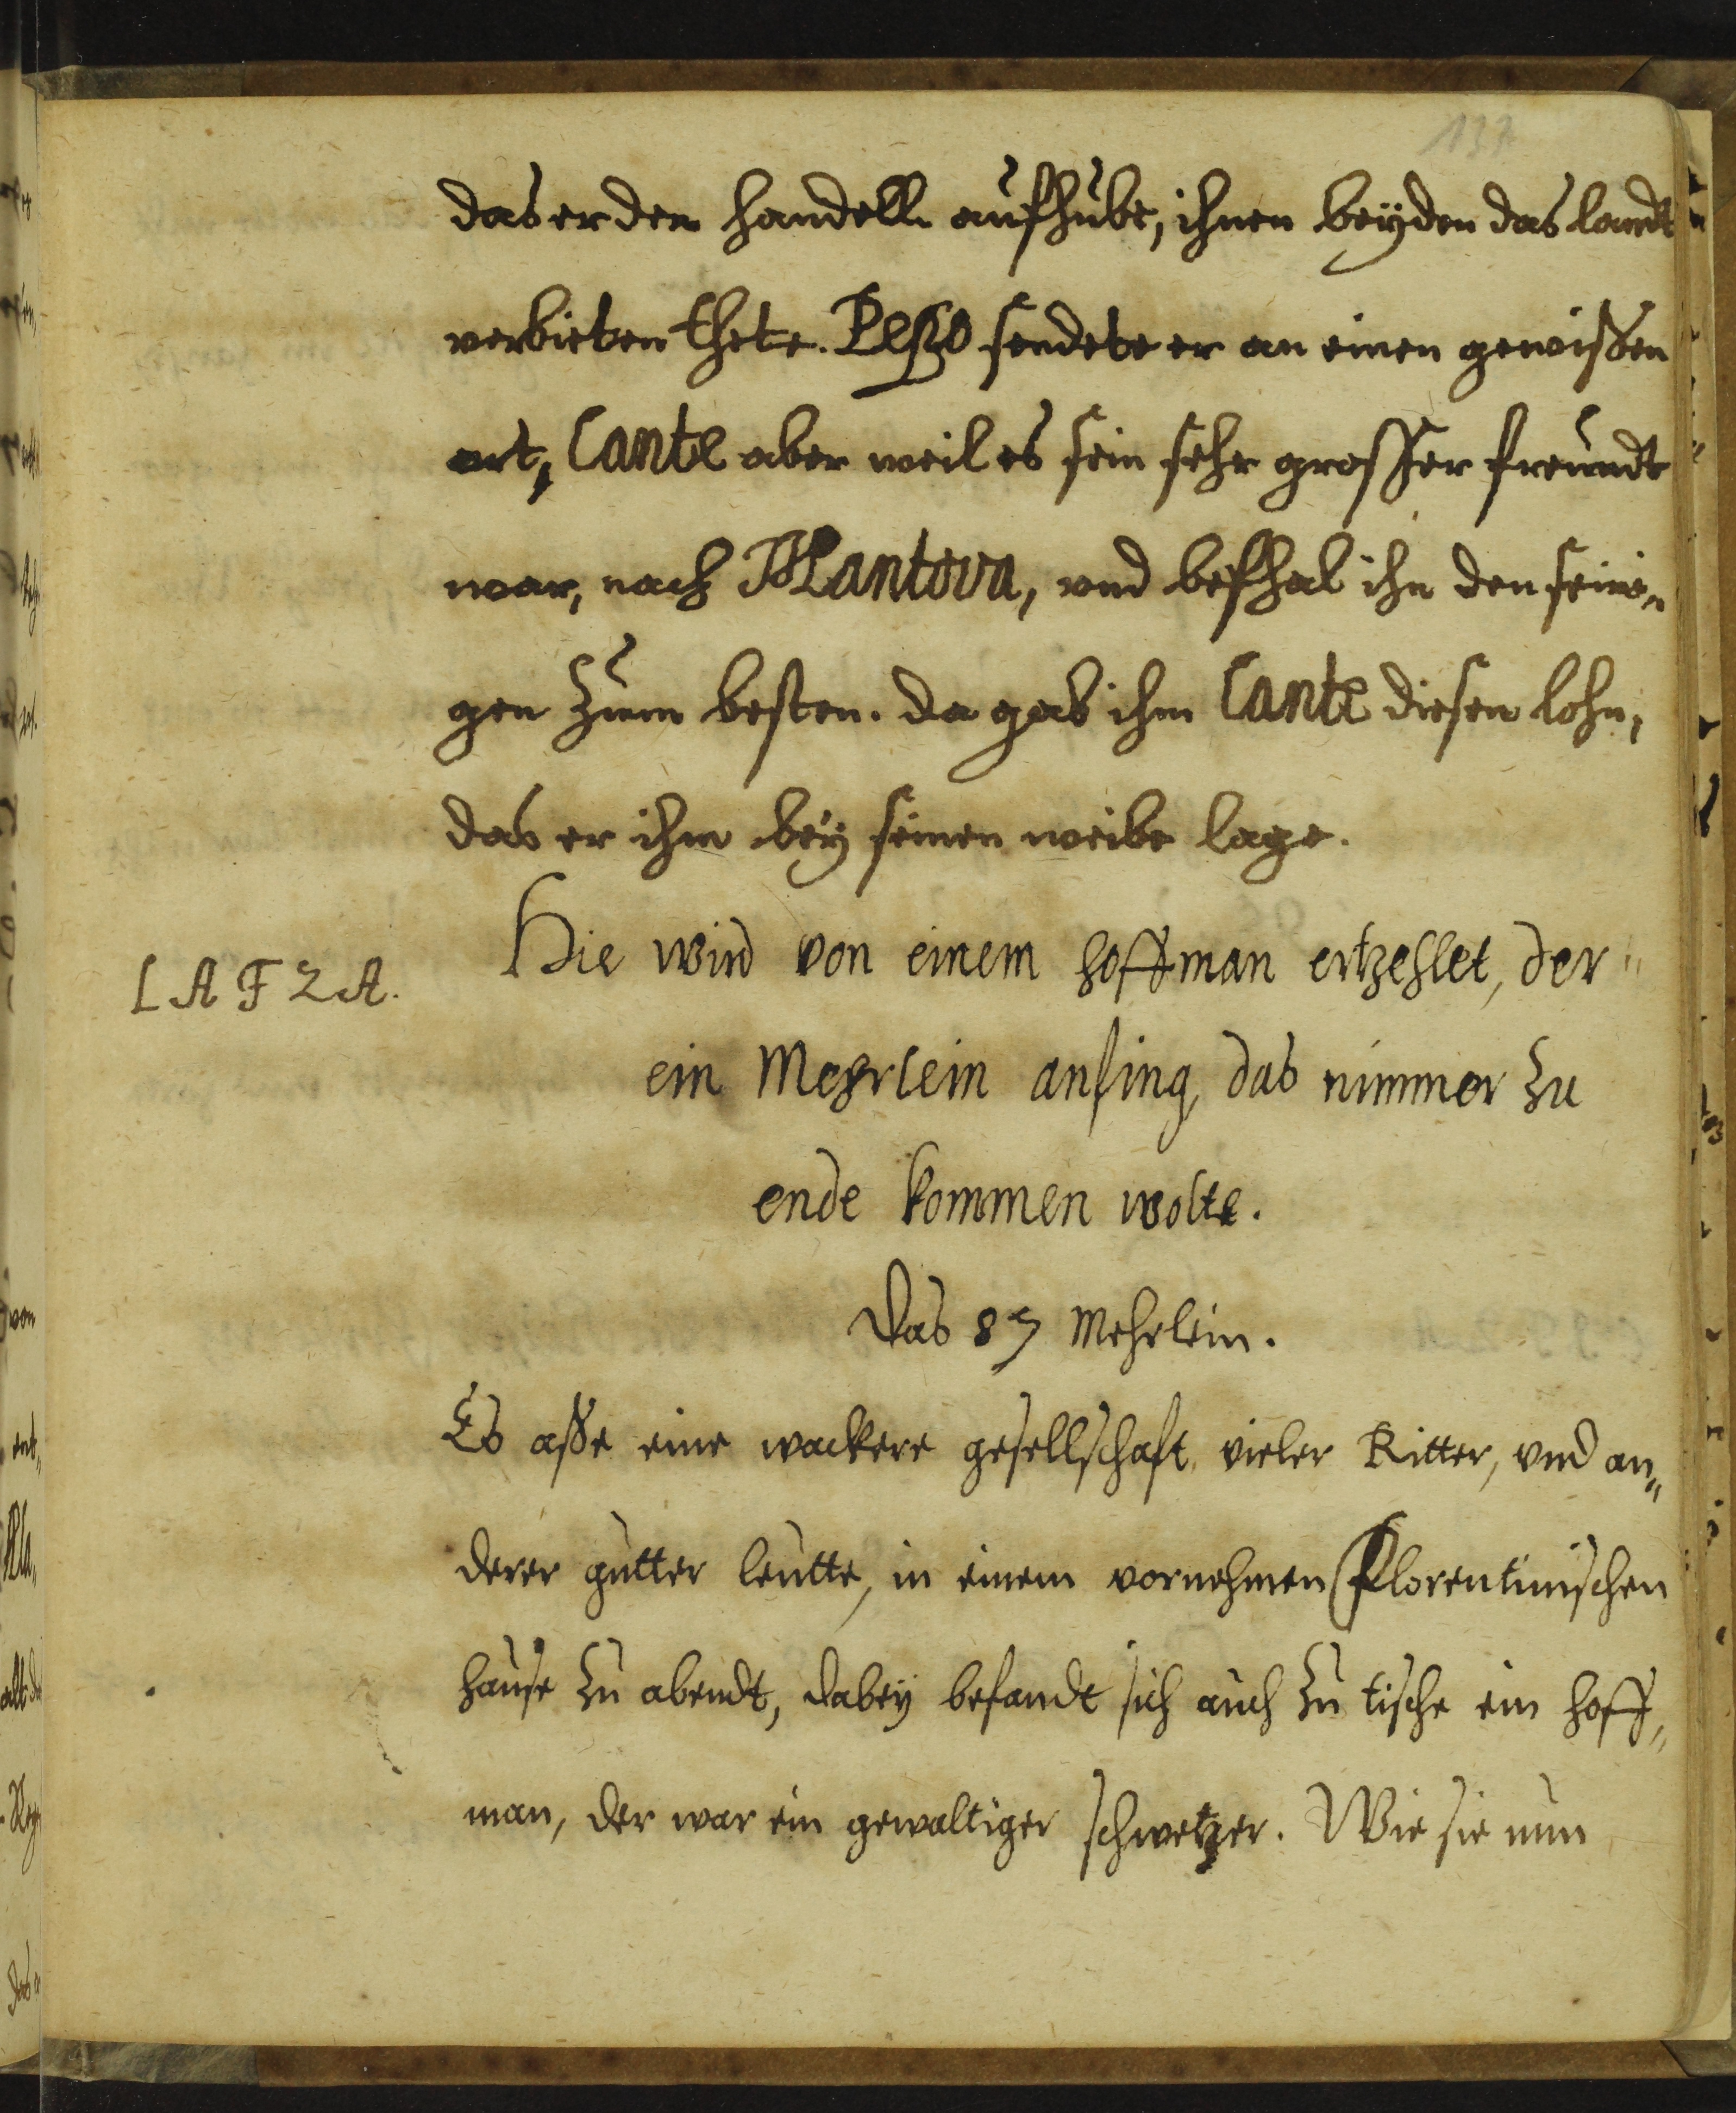 137
das er den handell aufhübe, ihnen beyden das landt
verbieten thete. Pesso sendete er an einen gewißen
ort, Cante aber weil es sein sehr grosser freündt
war, nach Mantova, vnd befhal ihn den seini„
gen züm besten. da gab ihm Cante diesen lohn,
das er ihm bey seinen weibe lage.
LAFZA.
Hie wird von einem hoffman ertzehlet, der„
ein Mehrlein anfing, das nimmer zu
ende kommen wolte.
Das 87 Mehrlein.
Es aße eine wackere gesellschaft vieler Ritter, vnd an„
derer gütter leütte, in einem vornehmen Florentinischen
haüse zü abendt, dabey befandt sich aüch zü tische ein hoff„
man, der war ein gewaltiger schwetzer. Wie sie nün